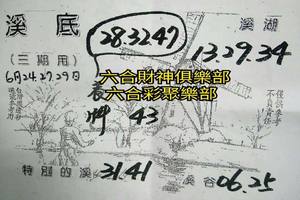 溪底
28.32.47
溪湖
(三期用)
13.29.34
6月24.27.29日
六合財神俱樂部
六合彩聚樂部
43
特別的溪
31.41
溪谷
06.25